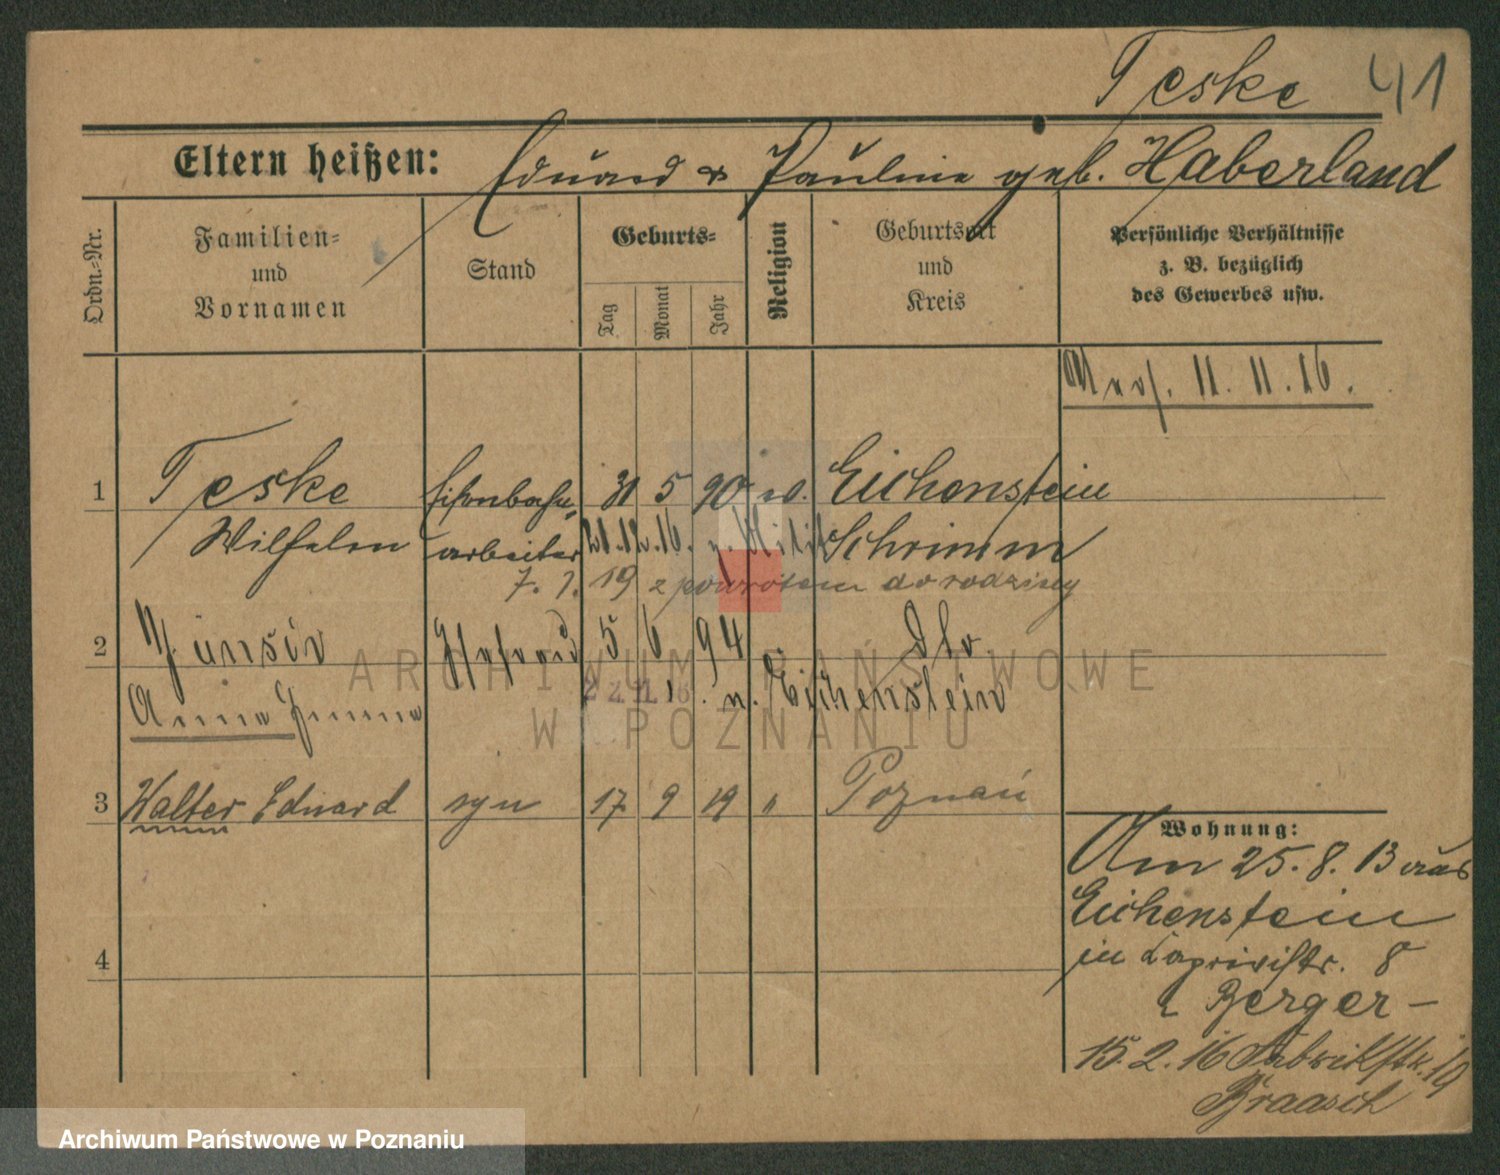 Teske 41
Eltern heißen: Eduard & Pauline geb. Haberland
Ordn.-Nr.
Familien-
und
Vornamen
Stand
Geburts-
Tag
Monat
Jahr
Religion
Geburtsort
und
Kreis
Persönliche Verhältnisse
z. B. bezüglich
des Gewerbes usw.
11. 11. 16.
1 Teske Eisenbahn- 31 5 90 ev. Eichenstein
Wilhelm arbeiter 21.12.16. n. Schrimm
7. 1. 19 z powrotem do rodziny
2 5 6 94 " dto
Anna Emma n. Eichenstein
3 Walter Eduard syn 17 9 19 " Poznań
4
Wohnung:
Am 25. 8. 13 aus
Eichenstein
in Caprivistr. 8
b Berger -
15. 2. 16 Fabrikstr. 19
Braasch
ARCHIWUM PAŃSTWOWE
W POZNANIU
Archiwum Państwowe w Poznaniu